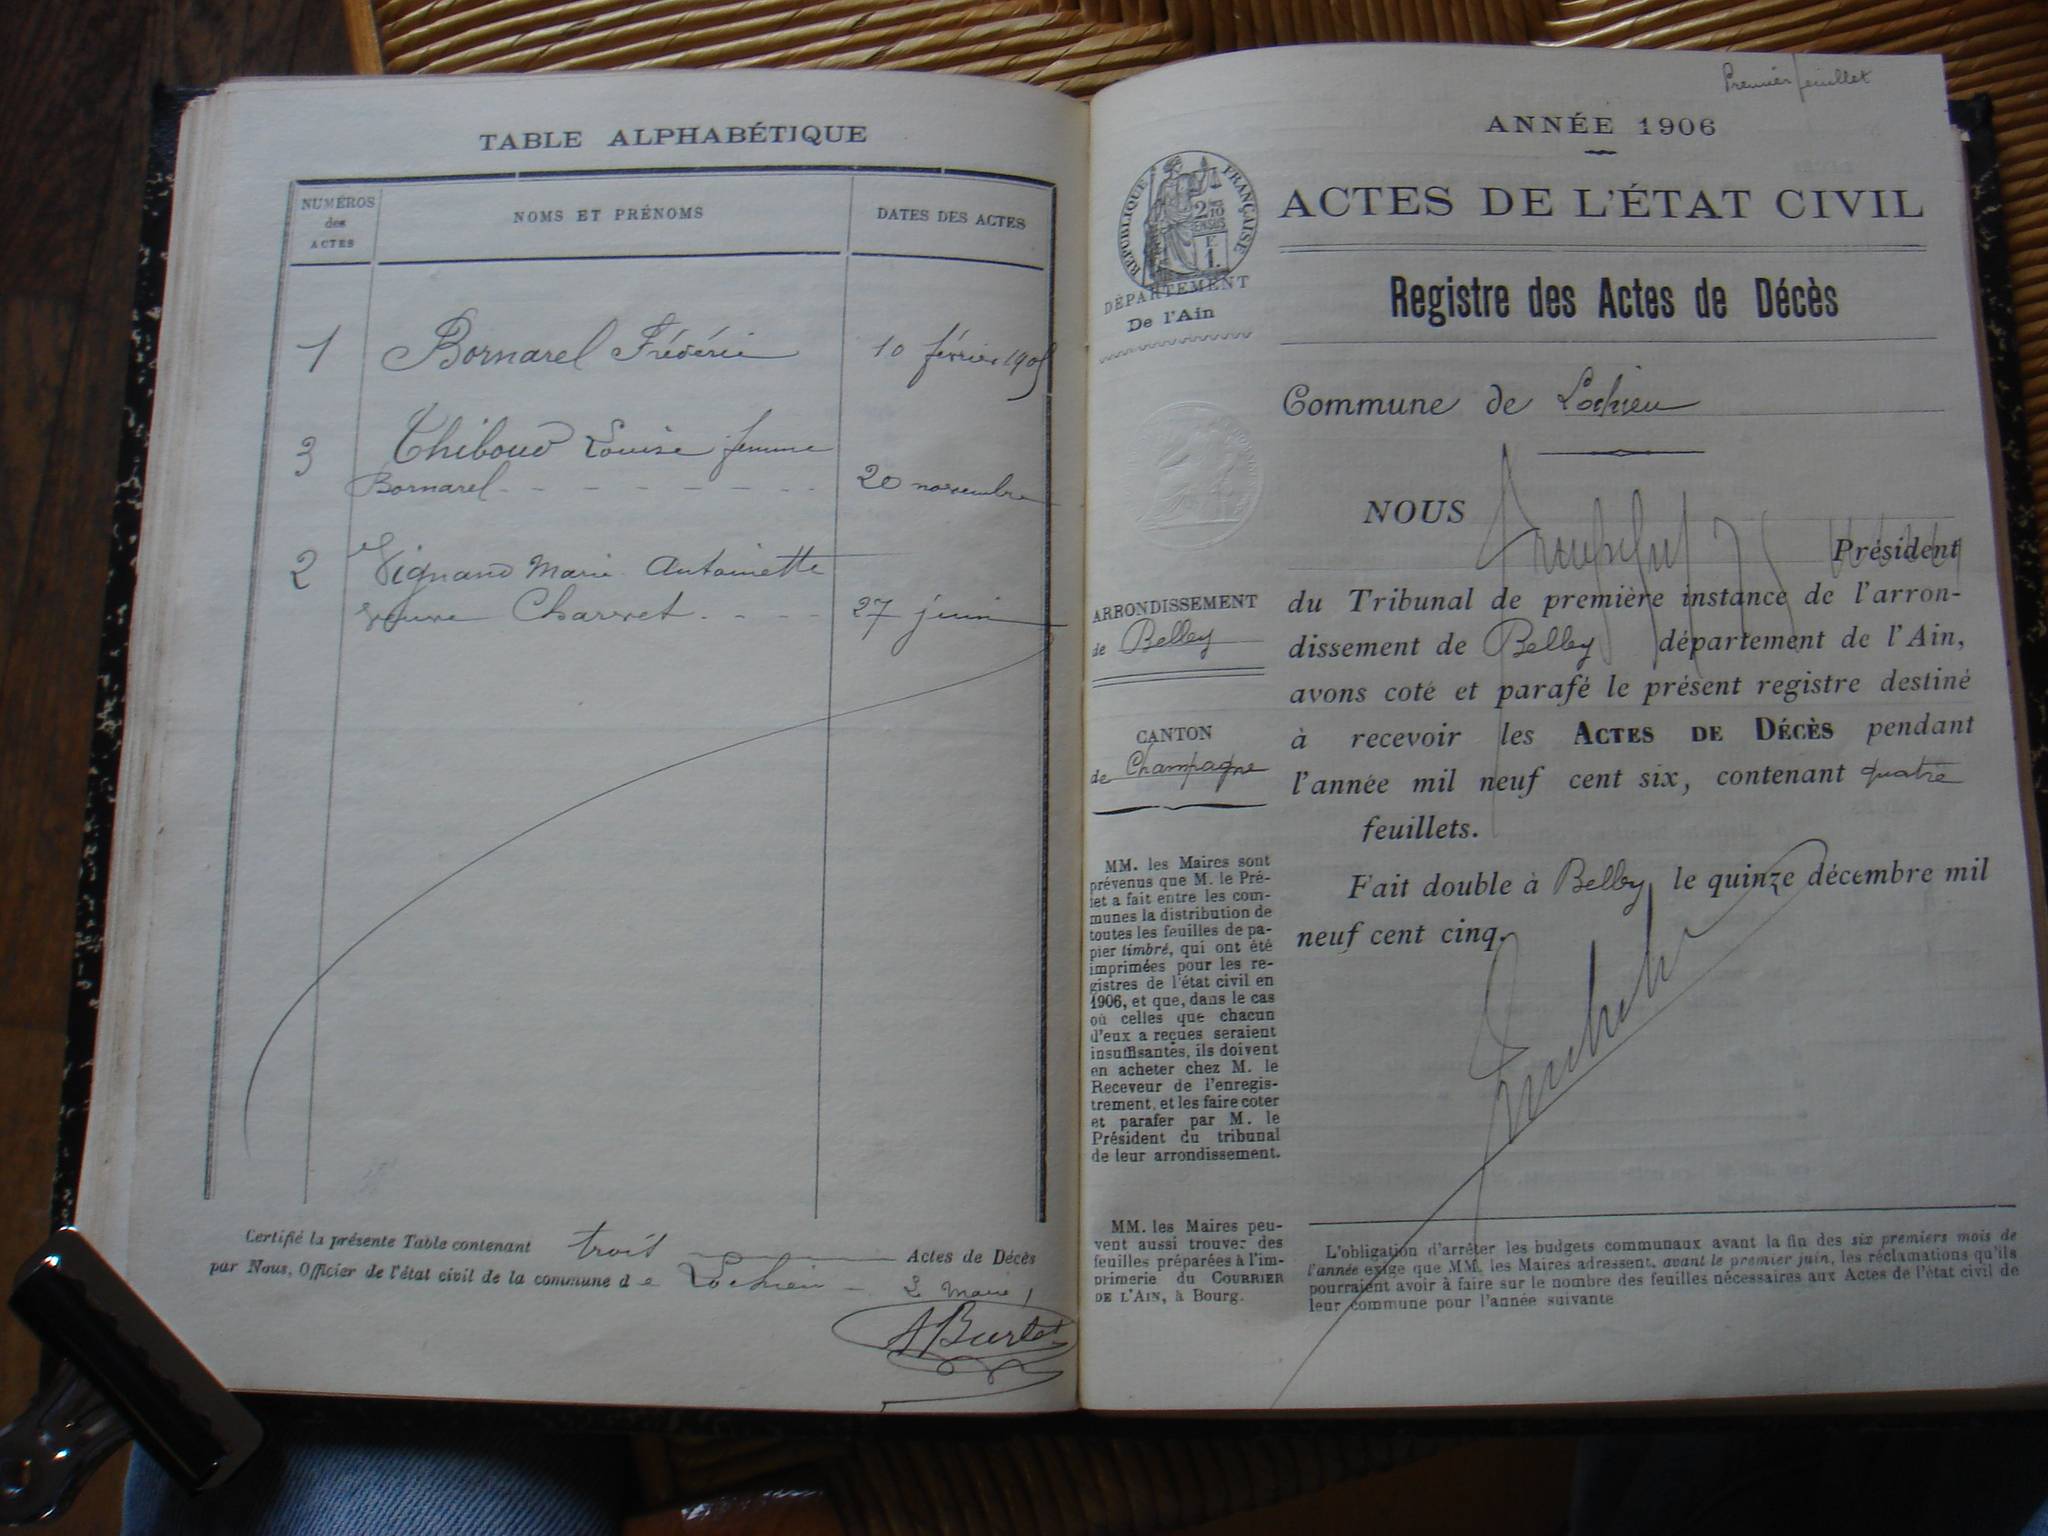 TABLE ALPHABÉTIQUE
NUMÉROS
des
ACTES
NOMS ET PRÉNOMS
DATES DES ACTES
1 Bornarel Frédéric 10 février 1905
3 Thiboud Louise femme
Bornarel - - - - - - - - 20 novembre
2 Vignand Marie Antoinette
veuve Charvet - - - - 27 juin
Certifié la présente Table contenant trois Actes de Décès
par Nous, Officier de l'état civil de la commune de Lochieu -
Le Maire,
Premier feuillet
ANNÉE 1906
RÉPUBLIQUE FRANÇAISE
DÉPARTEMENT
De l'Ain
ACTES DE L'ÉTAT CIVIL
Registre des Actes de Décès
Commune de Lochieu
NOUS
Président
du Tribunal de première instance de l'arron-
dissement de Belley département de l'Ain,
avons coté et parafé le présent registre destiné
à recevoir les ACTES DE DÉCÈS pendant
l'année mil neuf cent six, contenant quatre
feuillets.
Fait double à Belley, le quinze décembre mil
neuf cent cinq.
ARRONDISSEMENT
de Belley
CANTON
de Champagne
MM. les Maires sont
prévenus que M. le Pré-
fet a fait entre les com-
munes la distribution de
toutes les feuilles de pa-
pier timbré, qui ont été
imprimées pour les re-
gistres de l'état civil en
1906, et que, dans le cas
où celles que chacun
d'eux a reçues seraient
insuffisantes, ils doivent
en acheter chez M. le
Receveur de l'enregis-
trement, et les faire coter
et parafer par M. le
Président du tribunal
de leur arrondissement.
MM. les Maires peu-
vent aussi trouver des
feuilles préparées à l'im-
primerie du COURRIER
DE L'AIN, à Bourg.
L'obligation d'arrêter les budgets communaux avant la fin des six premiers mois de
l'année exige que MM. les Maires adressent, avant le premier juin, les réclamations qu'ils
pourraient avoir à faire sur le nombre des feuilles nécessaires aux Actes de l'état civil de
leur commune pour l'année suivante